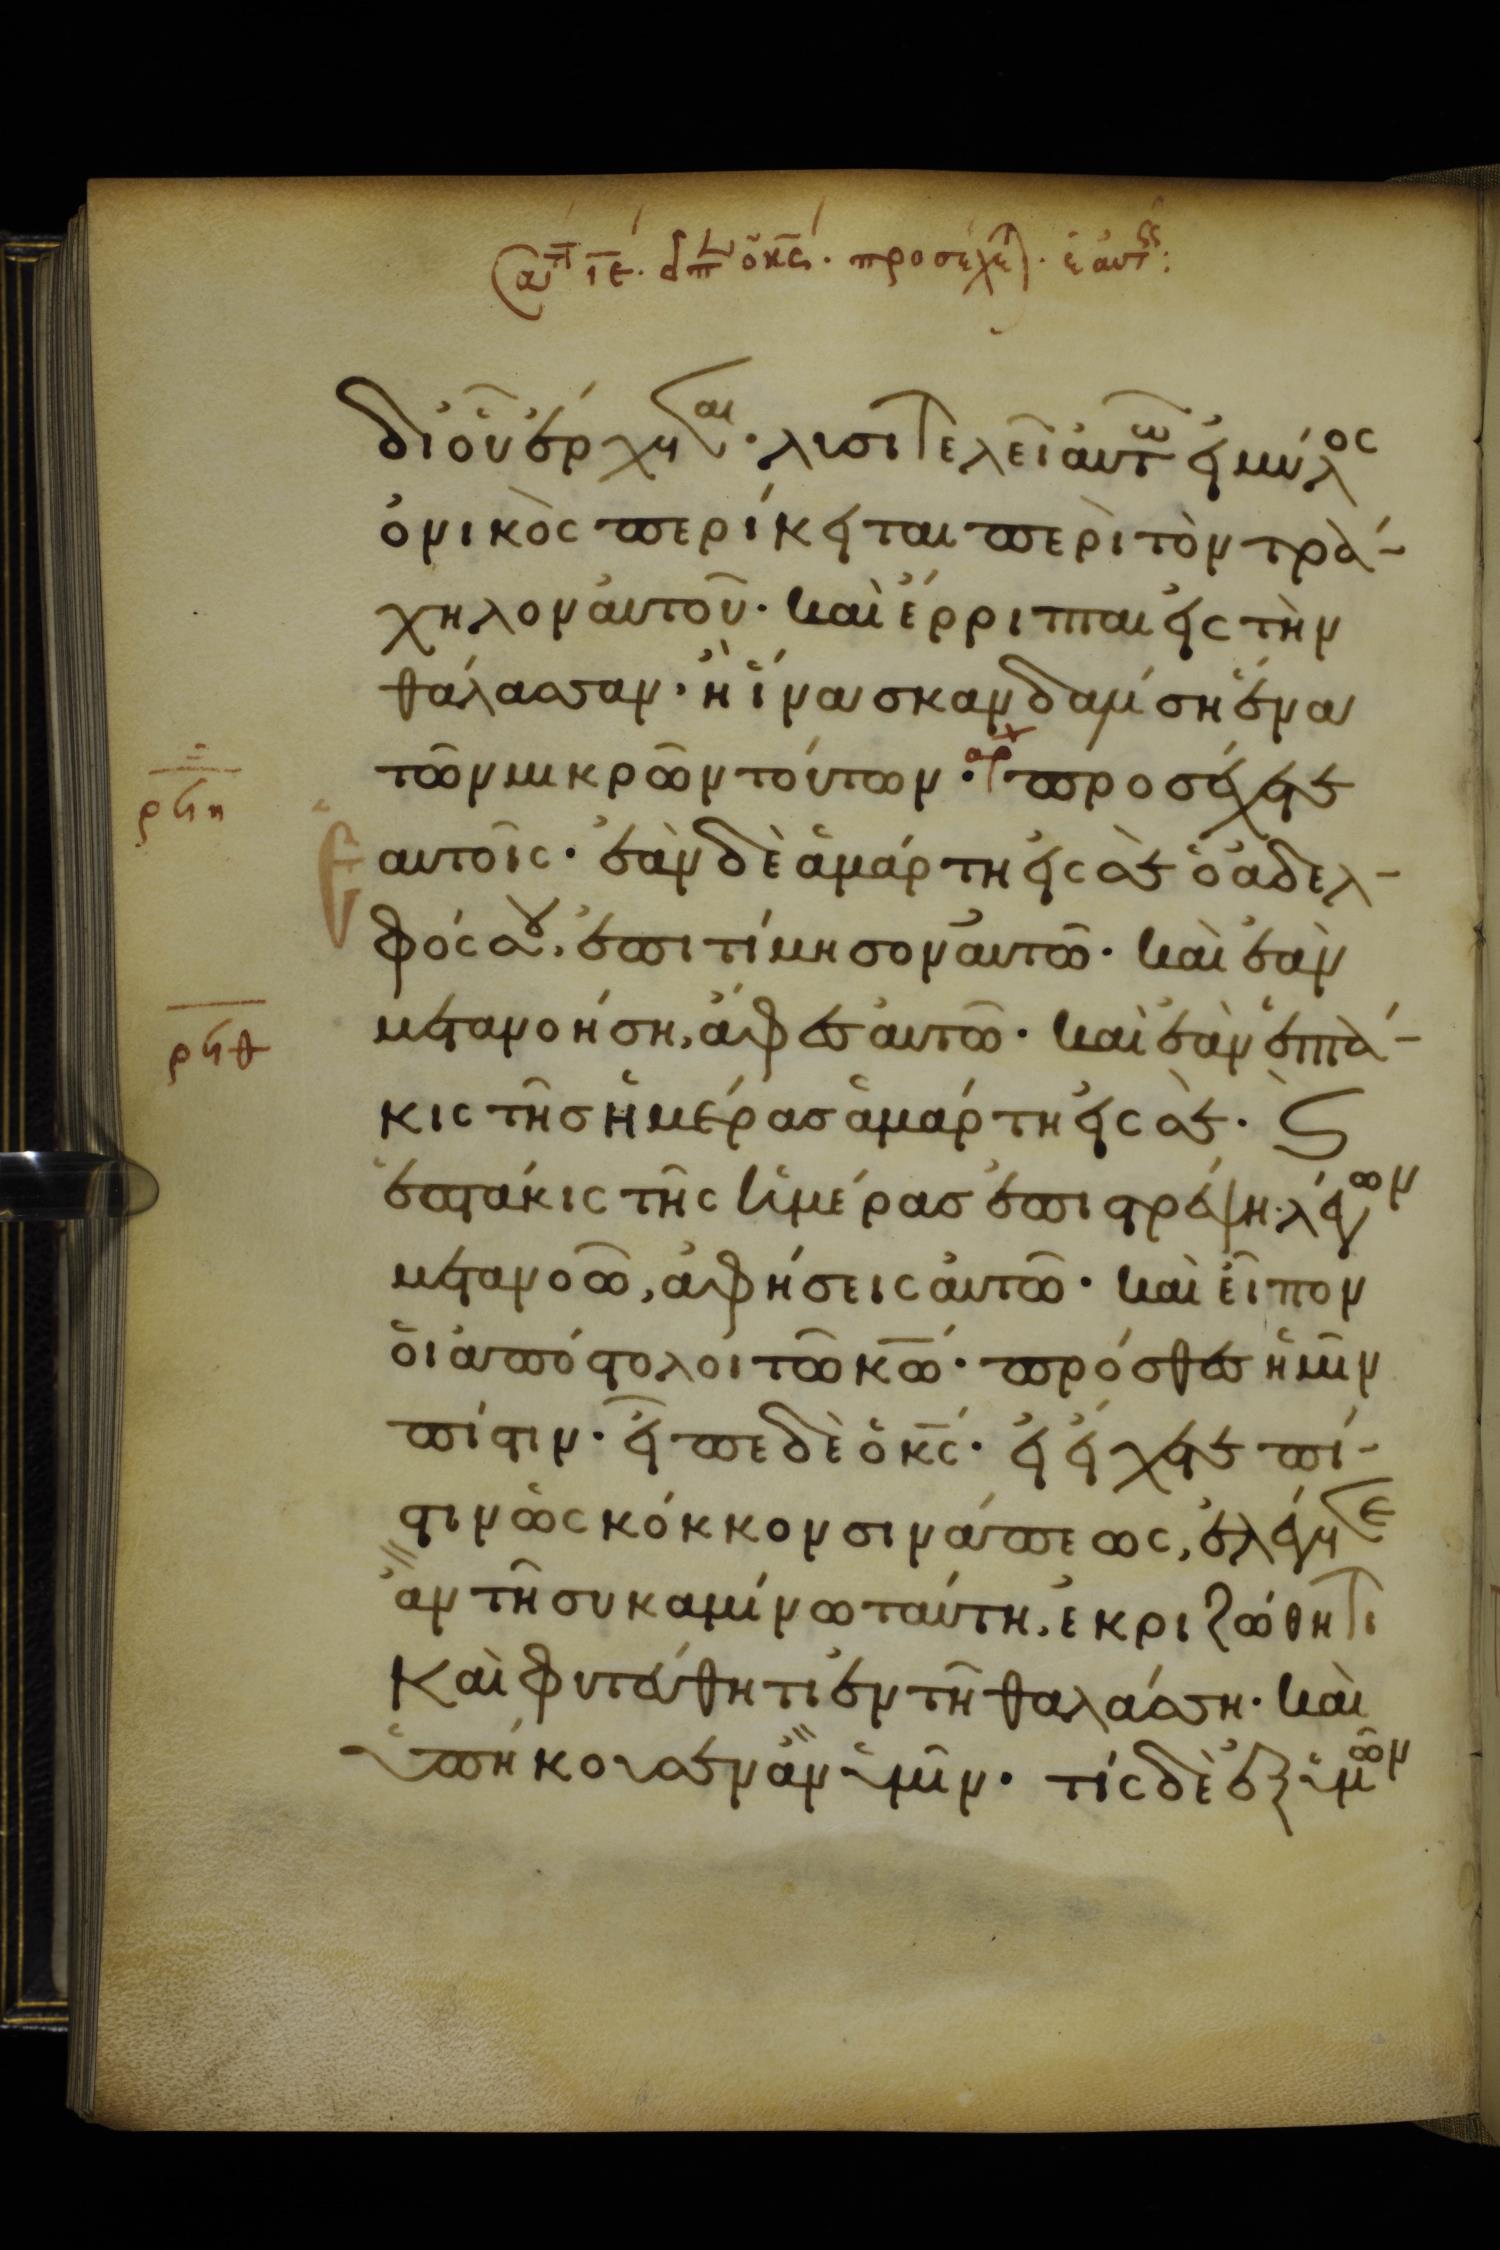 ὁ κς · προσέχετε · ἑαυτ
δι οὗ ἔρχεται · λυσιτελεῖ αὐτῶ εἰ μύλος
ὀνικὸς περίκειται περὶ τὸν τρὰ-
χηλον αὐτοῦ · καὶ ἔρριπται εἰς τὴν
θάλασσαν · ἢ ἵνα σκανδαλίση ἕνα
τῶν μικρῶν τούτων · ἀρχ προσέχετε
ρϟη
ἑαυτοῖς · ἐὰν δὲ ἁμάρτη εἰς σὲ ὁ ἀδελ-
φός σου, ἐπιτίμησον αὐτῶ · καὶ ἐὰν
μετανοήση, ἄφες αὐτῶ · καὶ ἐὰν ἑπτὰ-
ρϟθ
κις τῆς ἡμέρας ἁμάρτη εἰς σὲ · ϛ
ἑπτάκις τῆς ἡμέρας ἐπιστρέψη · λέγων
μετανοῶ, ἀφήσεις αὐτῶ · καὶ εἶπον
οἱ ἀπόστολοι τῶ κω · πρόσθες ἡμῖν
πίστιν · εἶπε δὲ ὁ κς · εἰ εἴχετε πί-
στιν ὡς κόκκον σινάπεως, ἐλέγετε
ἂν τῆ συκαμίνω ταύτη, ἐκριζώθητι
καὶ φυτεύθητι ἐν τῆ θαλάσση · καὶ
ὑπήκουσεν ἂν ὑμῖν · τίς δὲ ἐξ ὑμῶν